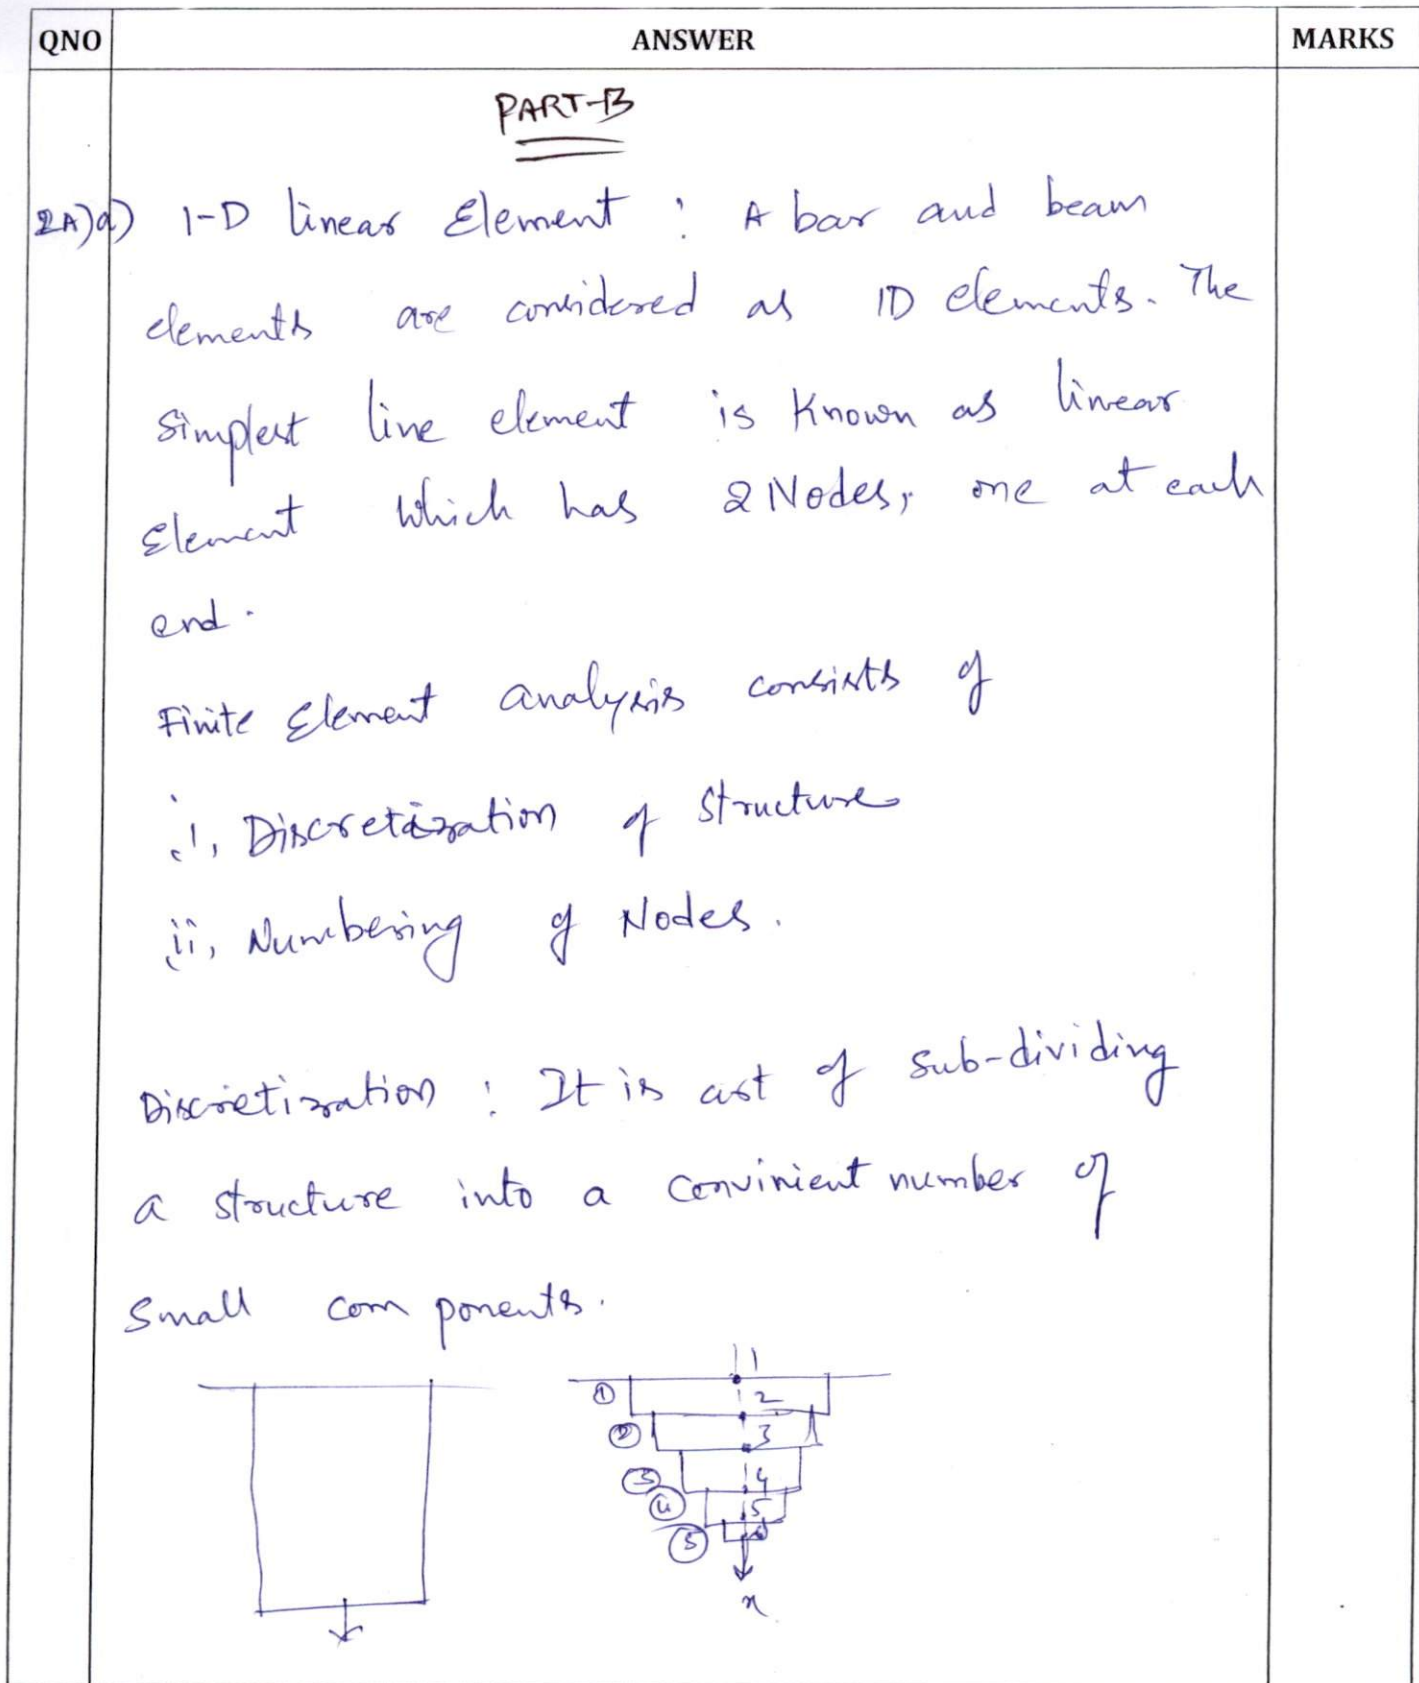 QNO ANSWER MARKS
PART-B
2A)a) 1-D linear Element : A bar and beam
elements are considered as 1D elements. The
simplest line element is known as linear
Element which has 2 Nodes, one at each
end.
Finite Element analysis consists of
i, Discretization of structure
ii, Numbering of Nodes.
Discretization : It is art of sub-dividing
a structure into a convinient number of
small components.
1
① 2
② 3
③ 4
④ 5
⑤
x